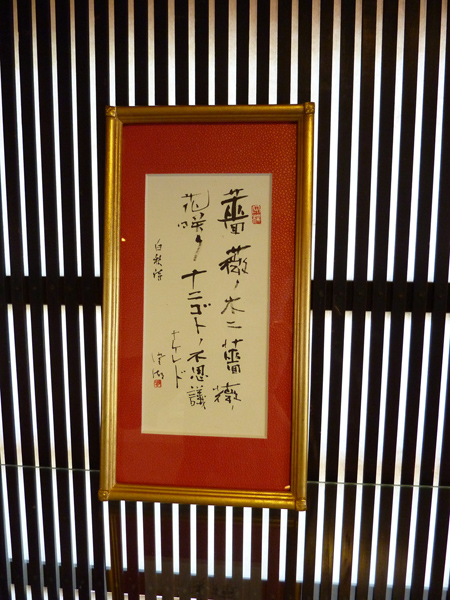 薔薇ノ木ニ薔薇ノ
花咲ク ナニゴトノ不思議
ナケレド
白秋詩